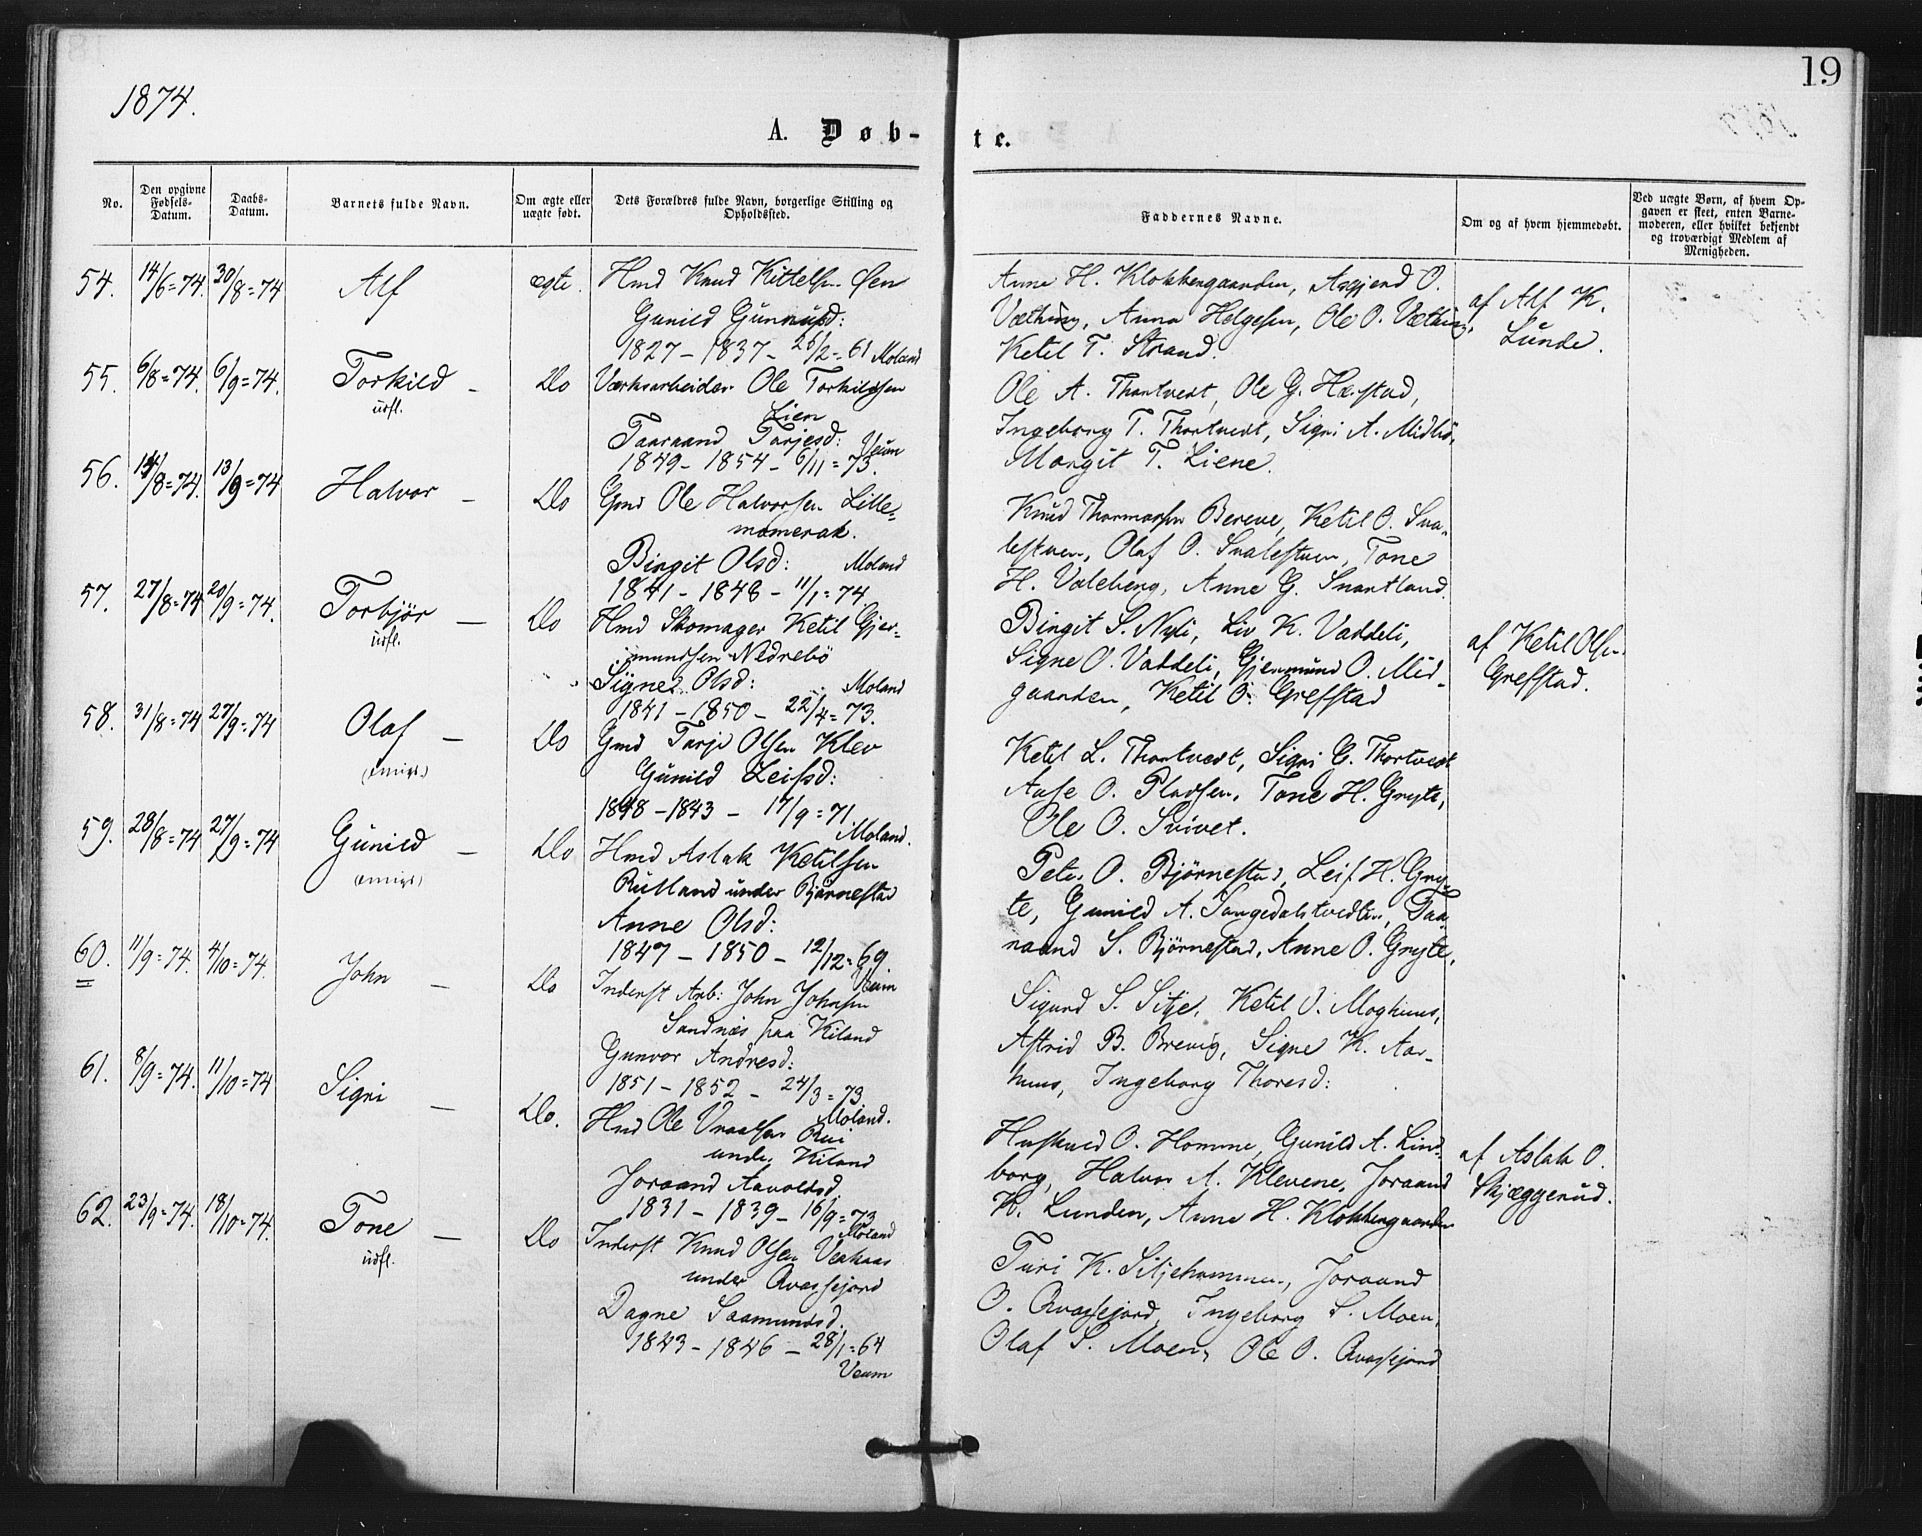 1874.
19
A. Døb-
te.
No.
Den opgivne Fødsels-Datum.
Daabs-Datum.
Barnets fulde Navn.
Om ægte eller uægte født.
Dets Forældres fulde Navn, borgerlige Stilling og Opholdssted.
Faddernes Navne.
Om og af hvem hjemmedøbt.
Ved uægte Børn, af hvem Opgaven er skeet, enten Barnemoderen, eller hvilket bekjendt og troværdigt Medlem af Menigheden.
54. 14/6=74. 30/8=74 Alf ægte. Hmd Knud Kittelsen Øen
Gunild Gunnufsd:
1827 - 1837 - 26/2=61 Moland
Anne H. Klokkergaarden, Asgjerd O.
Væthing, Anna Helgesen, Ole O. Vething,
Ketel T. Strand.
af Alf K.
Lunde.
55. 6/8=74. 6/9=74. Torkild - Do Værksarbeider Ole Torkildsen
udfl.
Lien
Taaraand Tarjesd: Veum
1849 - 1854 - 6/11=73.
Ole A. Thortvedt, Ole G. Hæstad,
Ingeborg T. Thortvedt, Sigri A. Midbö,
Margit T. Liene.
56. 14/8=74. 13/9=74 Halvor - Do Gmd Ole Halvorsen Lille=
momerak.
Birgit Olsd: Moland
1841 - 1848 - 11/1=74.
Knud Thormodsen Bereve, Ketil O. Sva-
lestuen, Olaf O. Svalestuen, Tone
H. Valeberg, Anne G. Snartland.
57. 27/8=74 20/9=74. Torbjör - Do Hmd Skomager Ketil Gjer-
udfl.
mundsen Nedrebö
Signe Olsd: Moland
1841 - 1850 - 22/4=73.
Birgit S. Nyli, Liv K. Vaddeli,
Signe O. Vaddeli, Gjermund O. Mid-
gaarden, Ketil O. Grefstad
af Ketil Olsen
Grefstad.
58. 31/8=74 27/9=74 Olaf - Do Gmd Tarje Olsen Klev
(emigr.)
Gunild Leifsd:
1848 - 1843 - 17/9=71
Moland.
Ketil L. Thortvedt, Sigri G. Thortvedt
Aase O. Pladsen, Tone H. Gryte,
Ole O. Svivet.
59. 28/8=74 27/9=74 Gunild - Do Hmd Aslak Ketilsen
(emigr.)
Rutland under Bjørnestad
Anne Olsd:
1847 - 1850 - 12/12=69
Veum
Peter O. Bjørnestad, Leif H. Gry-
te, Gunild A. Sangedalstvedten, Taa-
raand S. Bjørnestad, Anne O. Gryte,
60. 11/9=74. 4/10=74. John - Do Inderst Arb: John Johnsen
Sandnæs paa Kiland
Gunvor Andresd:
1851 - 1852 - 24/3=73
Moland.
Sigurd S. Sitje, Ketil O. Moghuus,
Astrid B. Brevig, Signe K. Aar-
huus, Ingeborg Thoresd:
61. 8/9=74. 11/10=74 Sigri - Do. Hmd Ole Vraalsen Rui
under Kiland
Joraand Aavoldsd.
1831 - 1839 - 16/9=73
Moland
O. Homme, Gunild A. Lind-
borg, Halvor A. Klevene, Joraand
K. Lunden, Anne H. Klokkergaarden
af Aslak O.
Skjæggerud.
62. 23/9=74. 18/10=74. Tone - Do Inderst Knud Olsen Vaahaas
udfl.
under Qvassejord
Dagne Saamundsd.
1843 - 1846 - 28/1=64
Veum
Turi K. Siljehammeren, Joraand
O. Qvassejord, Ingeborg S. Moen,
Olaf S. Moen, Ole O. Qvassejord